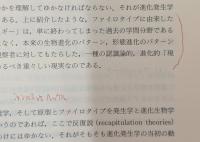 かを理解してゆかなければならない。それが進化発生学
ある。上に紹介したような、ファイロタイプに由来した
ギー」は、単に終わってしまった過去の学問分野である
なく、本来の生物進化のパターン、形態進化のパターン
観察者に対してもたらした、一種の認識論的、進化的「現
るべき重々しい現実なのである。
学、そして原型とファイロタイプを発生学と進化生物学
うのであれば、ここで反復説 (recapitulation theories)
けにはゆかない。それがそもそも進化発生学の当初の動